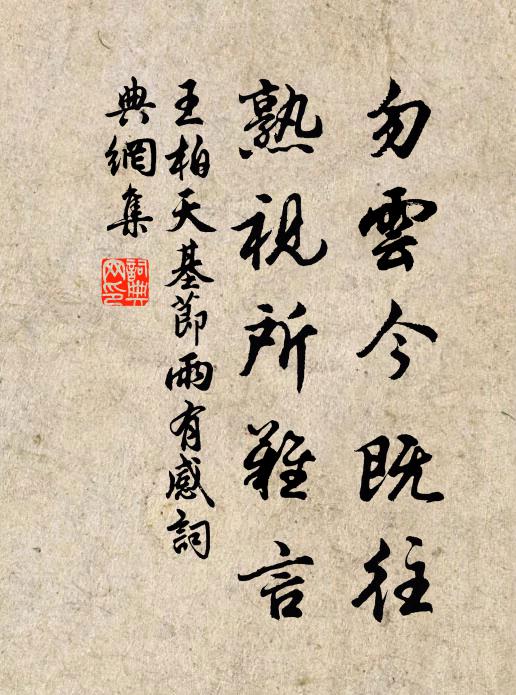 勿雲今既往
熟視所難言
王柏天基節雨有感詞
典網集
詞典
网印